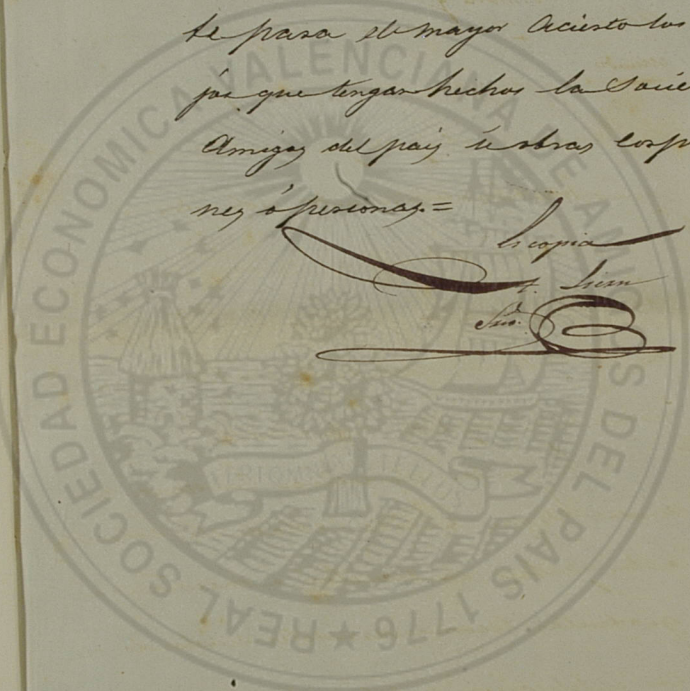 te para el mayor acierto los
jos que tengan hechos la Socie
Amigos del pais ú otras corp
nes ó personas.=
Es copia
Srio.
REAL SOCIEDAD ECONOMICA VALENCIANA DE AMIGOS DEL PAIS 1776